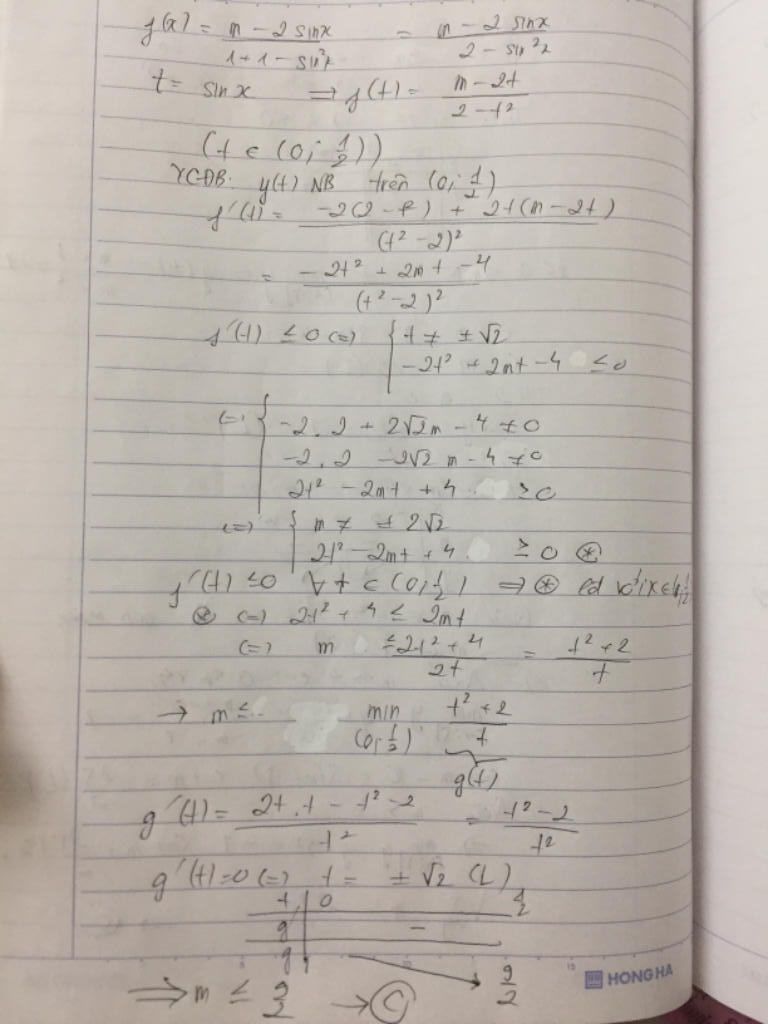 f(x) = m - 2 sinx / 1 + 1 - sin²x = m - 2 sinx / 2 - sin²x
t = sin x ⟹ f(t) = m - 2t / 2 - t²
(t ∈ (0; 1/2))
YCĐB: y(t) NB trên (0; 1/2)
f'(t) = -2(2 - t²) + 2t(m - 2t) / (t² - 2)²
= -2t² + 2mt - 4 / (t² - 2)²
f'(t) ≤ 0 (=) { t ≠ ±√2
-2t² + 2mt - 4 ≤ 0
(=) { -2.2 + 2√2m - 4 ≠ 0
-2.2 - 2√2 m - 4 ≠ 0
2t² - 2mt + 4 ≥ 0
(=) { m ≠ ± 2√2
2t² - 2mt + 4 ≥ 0 ⊛
f'(t) ≤ 0 ∀ t ∈ (0; 1/2) ⟹ ⊛
⊛ (=) 2t² + 4 ≤ 2mt
(=) m ≤ 2t² + 4 / 2t = t² + 2 / t
→ m ≤ min (0; 1/2) t² + 2 / t
g(t)
g'(t) = 2t.t - t² - 2 / t² = t² - 2 / t²
g'(t) = 0 (=) t = ± √2 (L)
t 0 1/2
g' -
g 9/2
HONG HA
⟹ m ≤ 9/2 → C